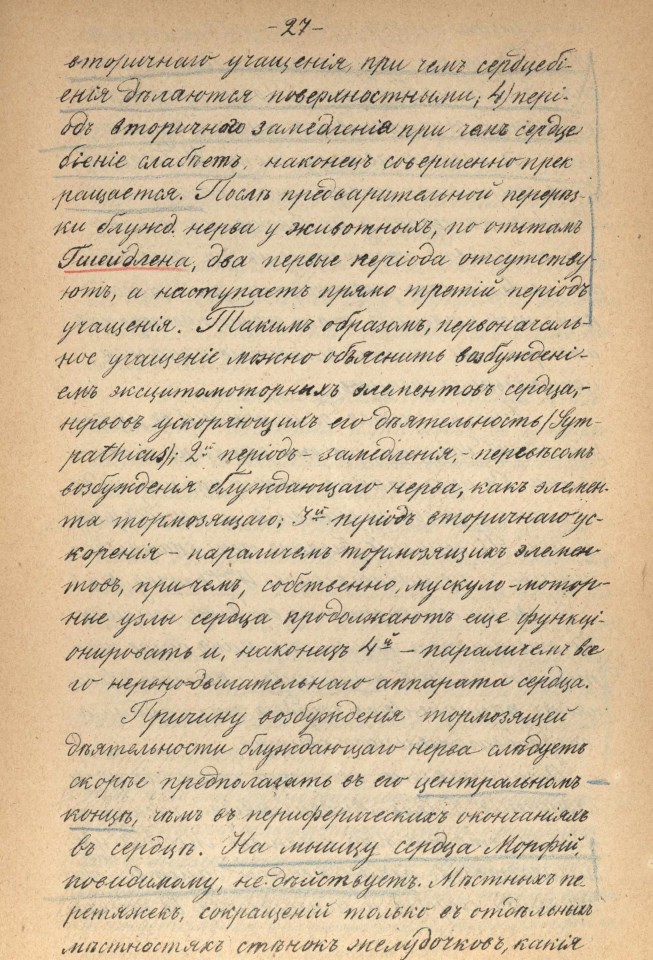 -27-
вторичнаго учащенія, при чемъ сердцебі-
енія дѣлаются поверхностными; 4) пері-
одъ вторичнаго замедленія при чемъ сердце
біеніе слабѣетъ, наконецъ совершенно прек
ращается. Послѣ предварительной перерѣз-
ки блужд. нерва у животныхъ, по опытамъ
Гшейдлена, два первые періода отсутству-
ютъ, а наступаетъ прямо третій періодъ
учащенія. Такимъ образомъ, первоначаль-
ное учащеніе можно объяснить возбуждені-
емъ эксцитомоторныхъ элементовъ сердца,-
нервовъ ускоряющихъ его дѣятельность (Sym-
pathicus); 2й періодъ - замедленія, - перевѣсомъ
возбужденія блуждающаго нерва, какъ элемен-
та тормозящаго; 3й періодъ вторичнаго ус-
коренія - параличемъ тормозящихъ элемен-
товъ, при чемъ, собственно, мускуло-мотор-
ные узлы сердца продолжаютъ еще функці-
онировать и, наконецъ 4й - параличемъ все
го нервно-двигательнаго аппарата сердца.
Причину возбужденія тормозящей
дѣятельности блуждающаго нерва слѣдуетъ
скорѣе предполагать въ его центральномъ
концѣ, чѣмъ въ периферическихъ окончаніяхъ
въ сердцѣ. На мышцу сердца Морфій,
повидимому, не дѣйствуетъ. Мѣстныхъ пе
ретяжекъ, сокращеній только въ отдѣльныхъ
мѣстностяхъ стѣнокъ желудочковъ, какія